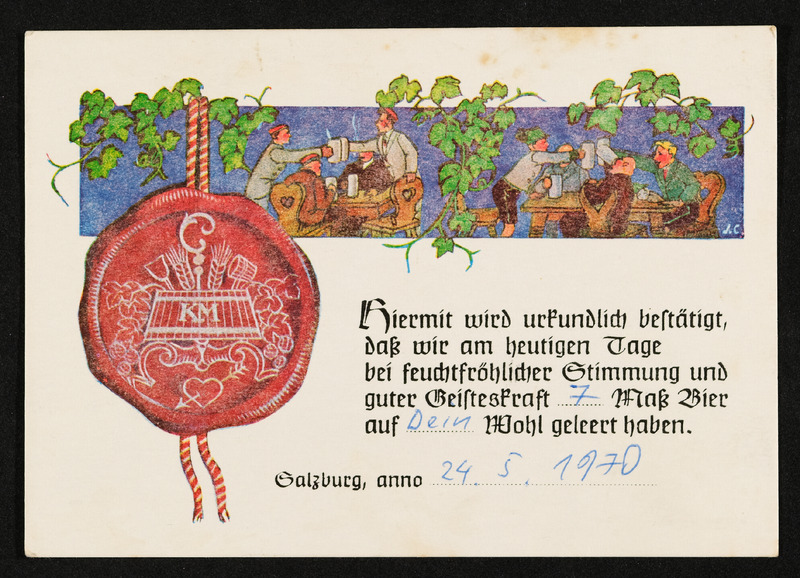 J.C.
KM
Hiermit wird urkundlich bestätigt,
daß wir am heutigen Tage
bei feuchtfröhlicher Stimmung und
guter Geisteskraft 7 Maß Bier
auf Dein Wohl geleert haben.
Salzburg, anno 24. 5. 1970